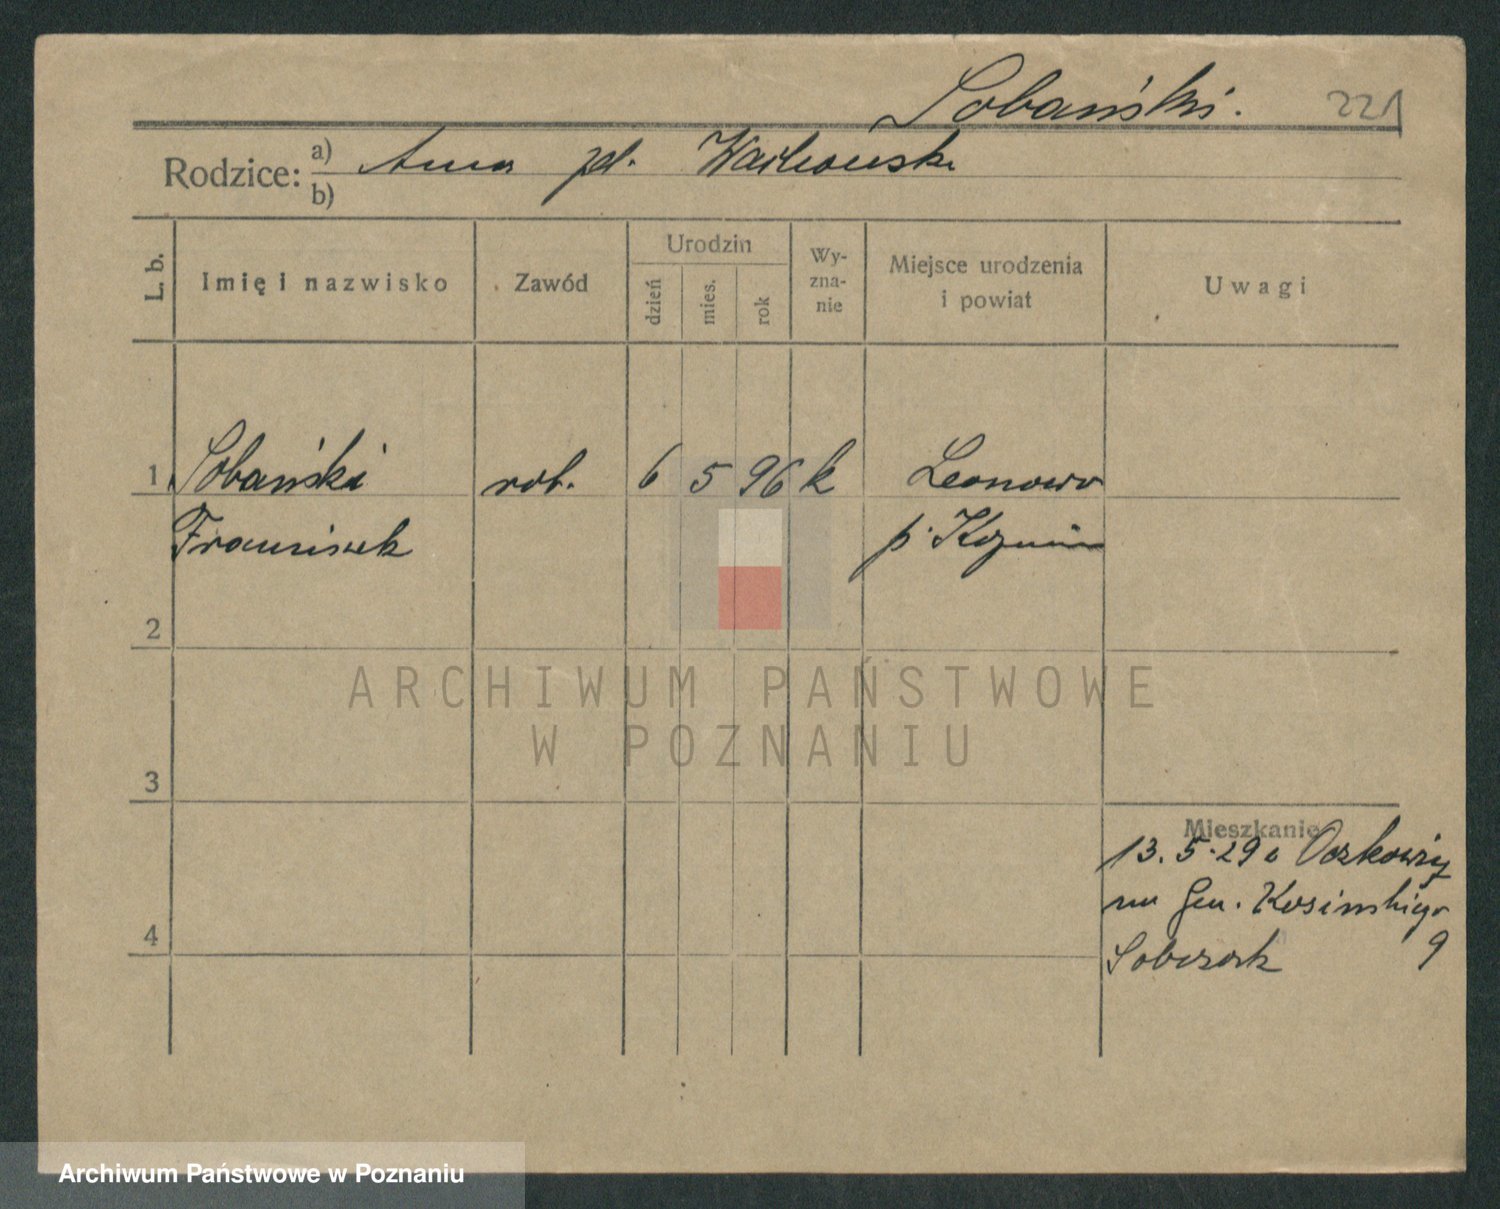 Sobański. 221
Rodzice: a) Anna
b)
L. b. Imię i nazwisko Zawód Urodzin dzień mies. rok Wy-zna-nie Miejsce urodzenia i powiat Uwagi
1 Sobański rob. 6 5 96 k Leonowo
Franciszek p. Koźmin
2
ARCHIWUM PAŃSTWOWE
W POZNANIU
3
Mieszkanie
13. 5. 29
na Gen. Kosińskiego
4 Sobczak 9
Archiwum Państwowe w Poznaniu